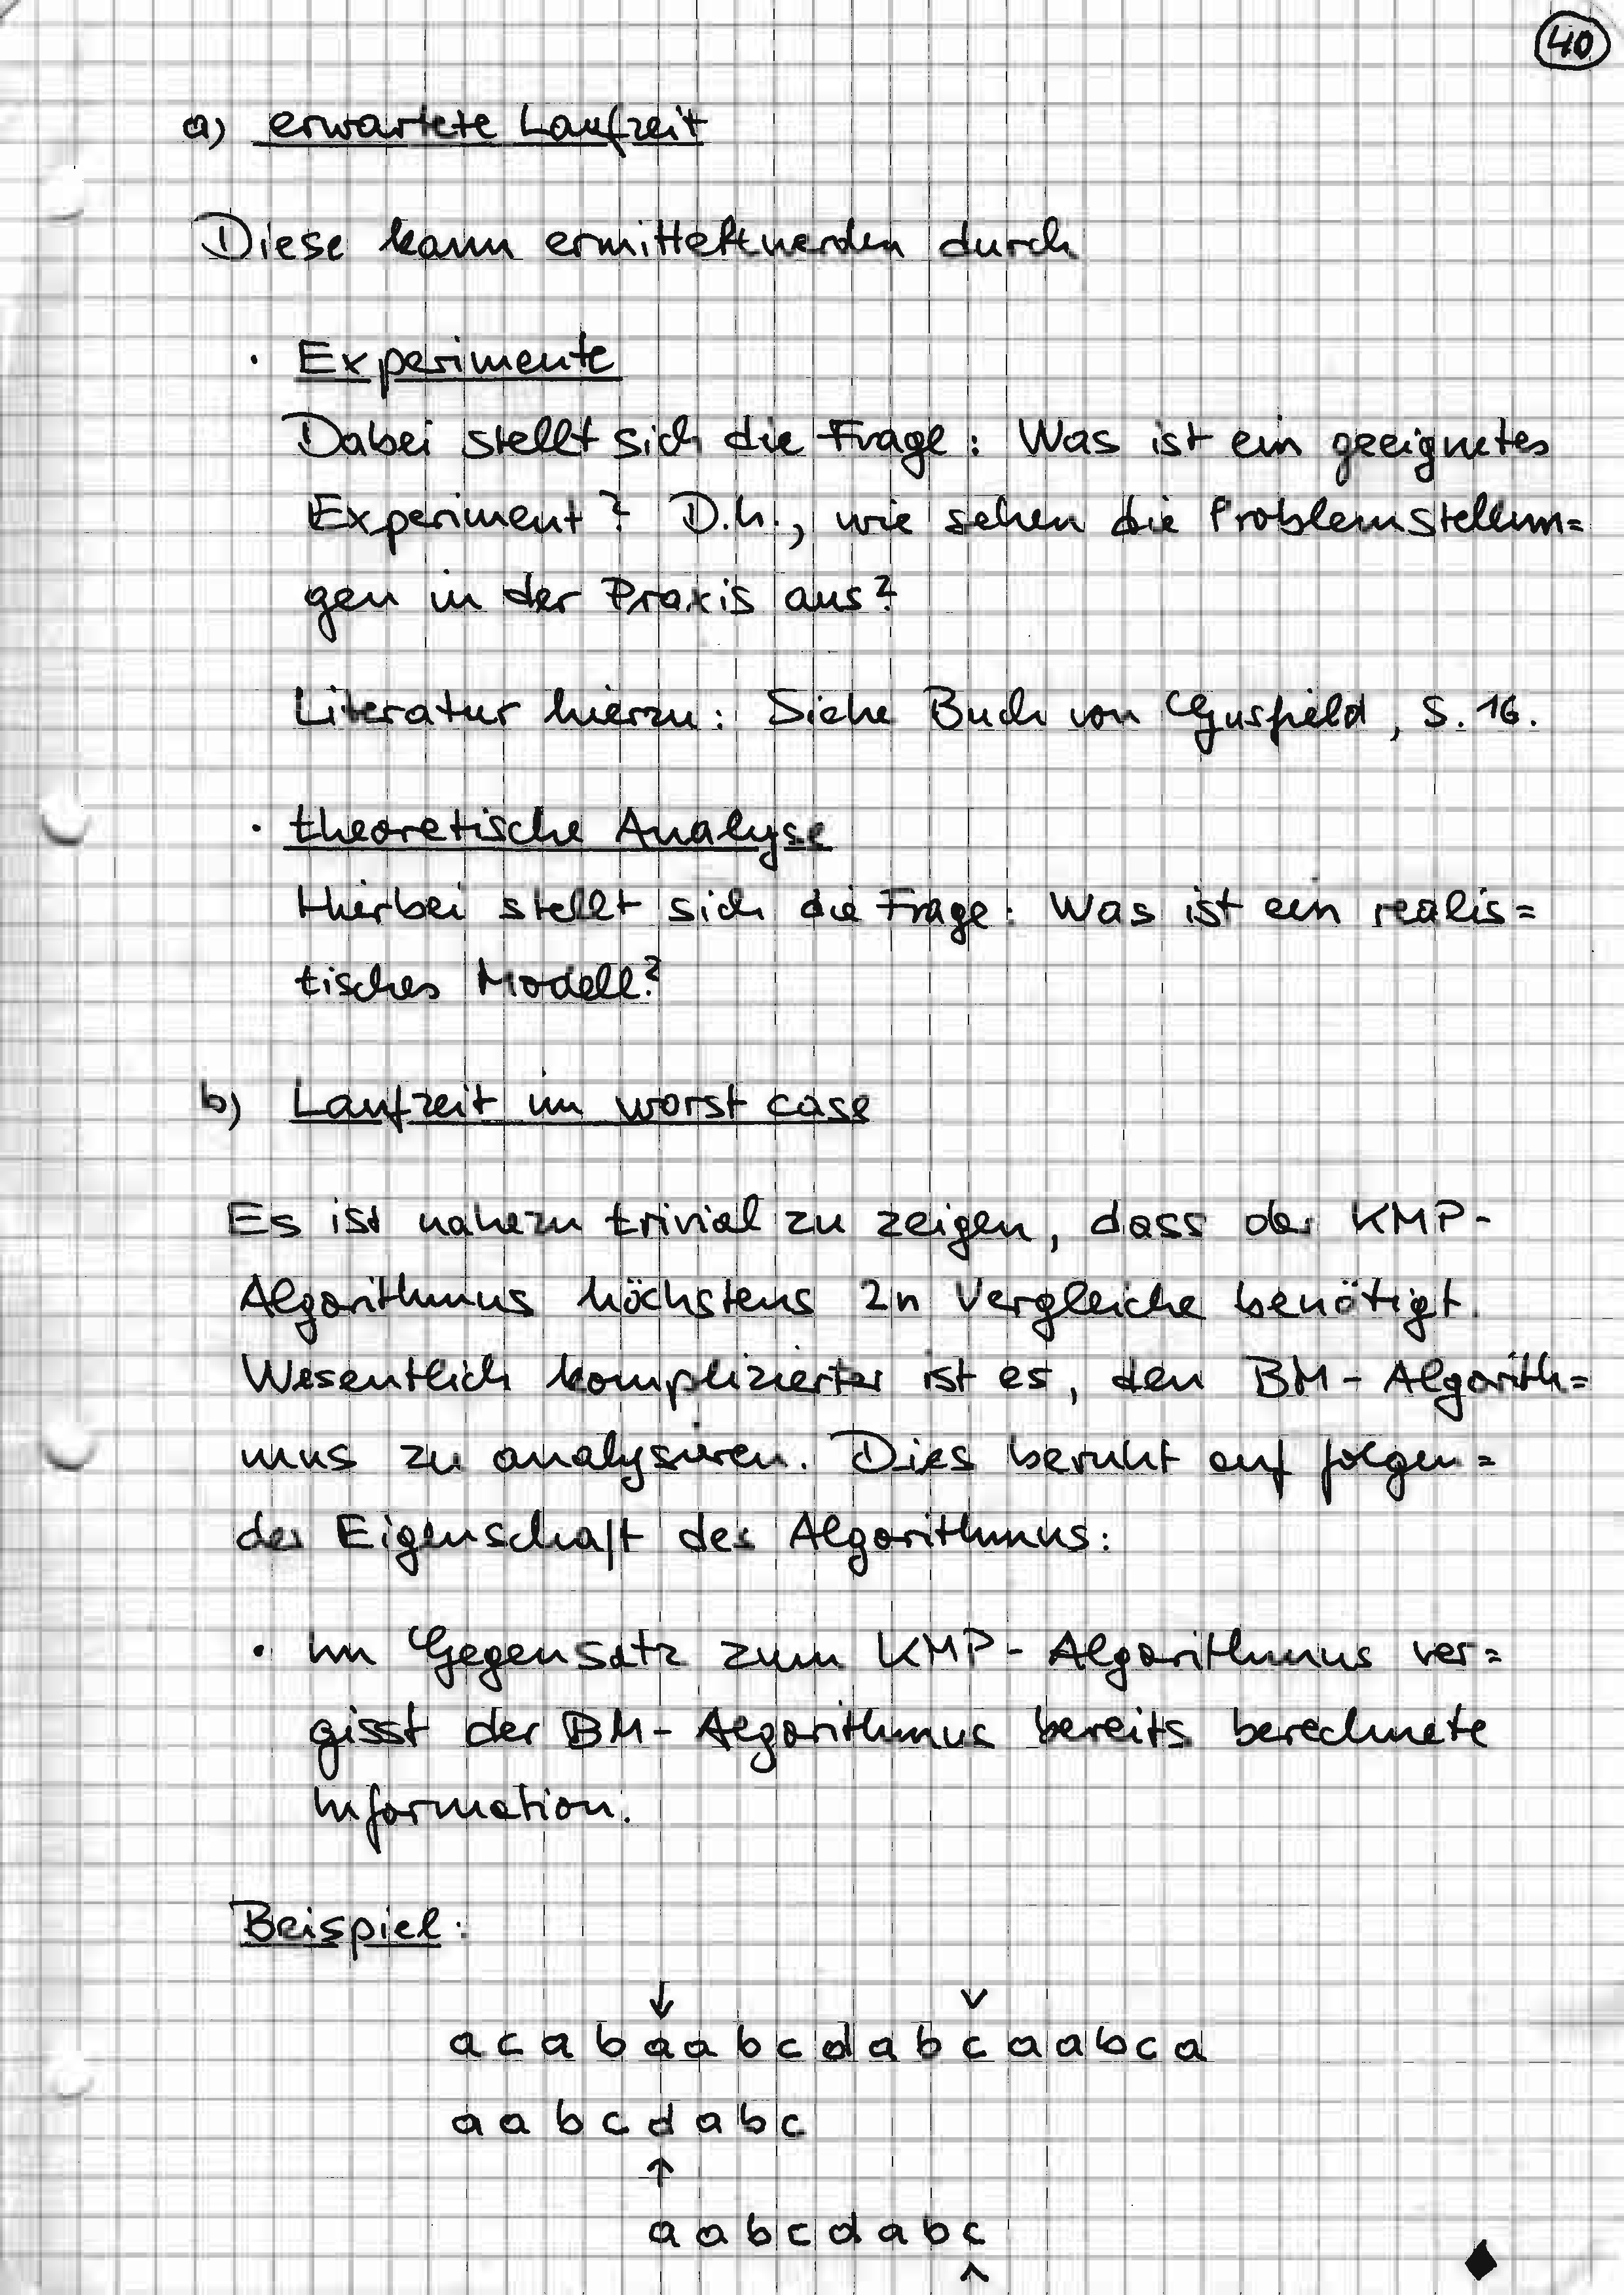 40
a) erwartete Laufzeit
Diese kann ermittelt werden durch
· Experimente
Dabei stellt sich die Frage: Was ist ein geeignetes
Experiment? D.h., wie sehen die Problemstellun=
gen in der Praxis aus?
Literatur hierzu: Siehe Buch von Gusfield, S. 16.
· theoretische Analyse
Hierbei stellt sich die Frage: Was ist ein realis=
tisches Modell?
b) Laufzeit im worst case
Es ist nahezu trivial zu zeigen, dass der KMP-
Algorithmus höchstens 2n Vergleiche benötigt.
Wesentlich komplizierter ist es, den BM-Algorith=
mus zu analysieren. Dies beruht auf folgen=
der Eigenschaft des Algorithmus:
• Im Gegensatz zum KMP-Algorithmus ver=
gisst der BM-Algorithmus bereits berechnete
Information.
Beispiel:
↓ v
a c a b a a b c d a b c a a b c a
a a b c d a b c
↑
a a b c d a b c
^ ◆